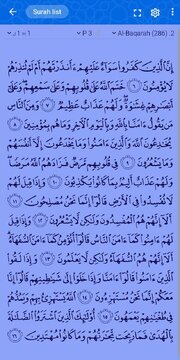 Surah list
Al-Baqarah (286) .2
P 3
إِنَّ ٱلَّذِينَ كَفَرُوا۟ سَوَآءٌ عَلَيْهِمْ ءَأَنذَرْتَهُمْ أَمْ لَمْ تُنذِرْهُمْ
لَا يُؤْمِنُونَ ٦ خَتَمَ ٱللَّهُ عَلَىٰ قُلُوبِهِمْ وَعَلَىٰ سَمْعِهِمْ وَعَلَىٰٓ
أَبْصَٰرِهِمْ غِشَٰوَةٌ وَلَهُمْ عَذَابٌ عَظِيمٌ ٧ وَمِنَ ٱلنَّاسِ
مَن يَقُولُ ءَامَنَّا بِٱللَّهِ وَبِٱلْيَوْمِ ٱلْءَاخِرِ وَمَا هُم بِمُؤْمِنِينَ ٨
يُخَٰدِعُونَ ٱللَّهَ وَٱلَّذِينَ ءَامَنُوا۟ وَمَا يَخْدَعُونَ إِلَّآ أَنفُسَهُمْ
وَمَا يَشْعُرُونَ ٩ فِى قُلُوبِهِم مَّرَضٌ فَزَادَهُمُ ٱللَّهُ مَرَضًا
وَلَهُمْ عَذَابٌ أَلِيمٌۢ بِمَا كَانُوا۟ يَكْذِبُونَ ١٠ وَإِذَا قِيلَ لَهُمْ
لَا تُفْسِدُوا۟ فِى ٱلْأَرْضِ قَالُوٓا۟ إِنَّمَا نَحْنُ مُصْلِحُونَ ١١
أَلَآ إِنَّهُمْ هُمُ ٱلْمُفْسِدُونَ وَلَٰكِن لَّا يَشْعُرُونَ ١٢ وَإِذَا قِيلَ
لَهُمْ ءَامِنُوا۟ كَمَآ ءَامَنَ ٱلنَّاسُ قَالُوٓا۟ أَنُؤْمِنُ كَمَآ ءَامَنَ ٱلسُّفَهَآءُ
أَلَآ إِنَّهُمْ هُمُ ٱلسُّفَهَآءُ وَلَٰكِن لَّا يَعْلَمُونَ ١٣ وَإِذَا لَقُوا۟
ٱلَّذِينَ ءَامَنُوا۟ قَالُوٓا۟ ءَامَنَّا وَإِذَا خَلَوْا۟ إِلَىٰ شَيَٰطِينِهِمْ قَالُوٓا۟ إِنَّا
مَعَكُمْ إِنَّمَا نَحْنُ مُسْتَهْزِءُونَ ١٤ ٱللَّهُ يَسْتَهْزِئُ بِهِمْ وَيَمُدُّهُمْ
فِى طُغْيَٰنِهِمْ يَعْمَهُونَ ١٥ أُو۟لَٰٓئِكَ ٱلَّذِينَ ٱشْتَرَوُا۟ ٱلضَّلَٰلَةَ
بِٱلْهُدَىٰ فَمَا رَبِحَت تِّجَٰرَتُهُمْ وَمَا كَانُوا۟ مُهْتَدِينَ ١٦